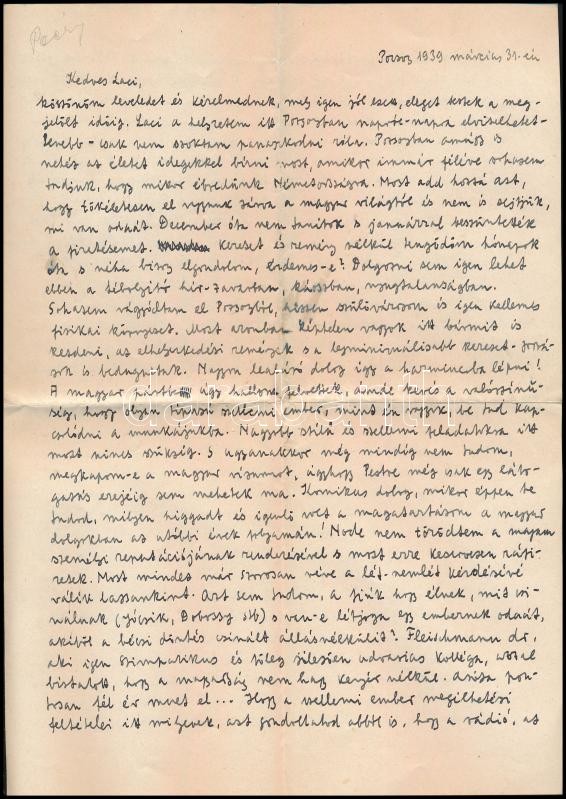 Pozsony 1939 március 31-én
Kedves Laci,
köszönöm leveledet és kérelmednek, mely igen jól esett, eleget teszek a meg-
jelölt időig. Laci a helyzetem itt Pozsonyban napról-napra elviselhetet-
lenebb - csak nem szoktam panaszkodni róla. Pozsonyban amúgy is
nehéz az életet idegekkel bírni most, amikor immár féléve sohasem
tudjuk, hogy mikor ébredünk Németországra. Most add hozzá azt,
hogy tökéletesen el vagyunk zárva a magyar világtól és nem is sejtjük,
mi van odaát. December óta nem tanítok s januárral beszüntették
a fizetésemet. Kereset és remény nélkül tengődöm hónapok
óta s néha bizony elgondolom, érdemes-e? Dolgozni sem igen lehet
ebben a tébolyító hír-zavarban, káoszban, nyugtalanságban.
Sohasem vágyódtam el Pozsonyból, hiszen szülővárosom és igen kellemes
fizikai környezet. Most azonban képtelen vagyok itt bármit is
kezdeni, az elhelyezkedési remények s a legminimálisabb kereset-forrá-
sok is bedugultak. Nagyon leszázó dolog így a harmincba lépni!
A magyar pártba úgy hallom felvettek, ámde kevés a valószínű-
ség, hogy olyan típusú szellemi ember, mint én vagyok, be tud kap-
csolódni a munkájukba. Nagyobb stílű és szellemi feladatokra itt
most nincs szükség. S ugyanakkor még mindig nem tudom,
megkapom-e a magyar vízumot, úgyhogy Pestre még csak egy láto-
gatás erejéig sem mehetek ma. Komikus dolog, mikor éppen te
tudod, milyen higgadt és igenlő volt a magatartásom a magyar
dolgokban az utóbbi évek folyamán! Node nem törődtem a magam
személyi reputációjának rendezésével s most erre keservesen ráfi-
zetek. Most mindez már szorosan véve a lét-nemlét kérdésévé
válik lassankint. Azt sem tudom, a fiúk hogy élnek, mit csi-
nálnak (Jócsik, Dobossy stb) s van-e létjoga egy embernek odaát,
akiből a bécsi döntés csinált állásnélkülit? Fleischmann dr,
aki igen szimpatikus és főleg ízlésesen udvarias kolléga, azzal
biztatott, hogy a magyarság nem hagy kenyér nélkül. Azóta pon-
tosan fél év mult el... Hogy a szellemi ember megélhetési
feltételei itt milyenek, azt gondolhatod abból is, hogy a rádió, az
darabanth